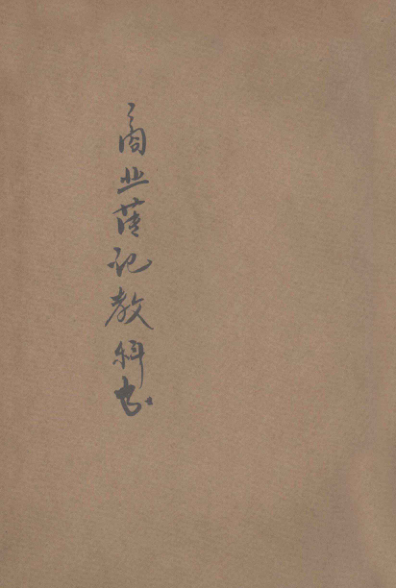 商业簿记教科书